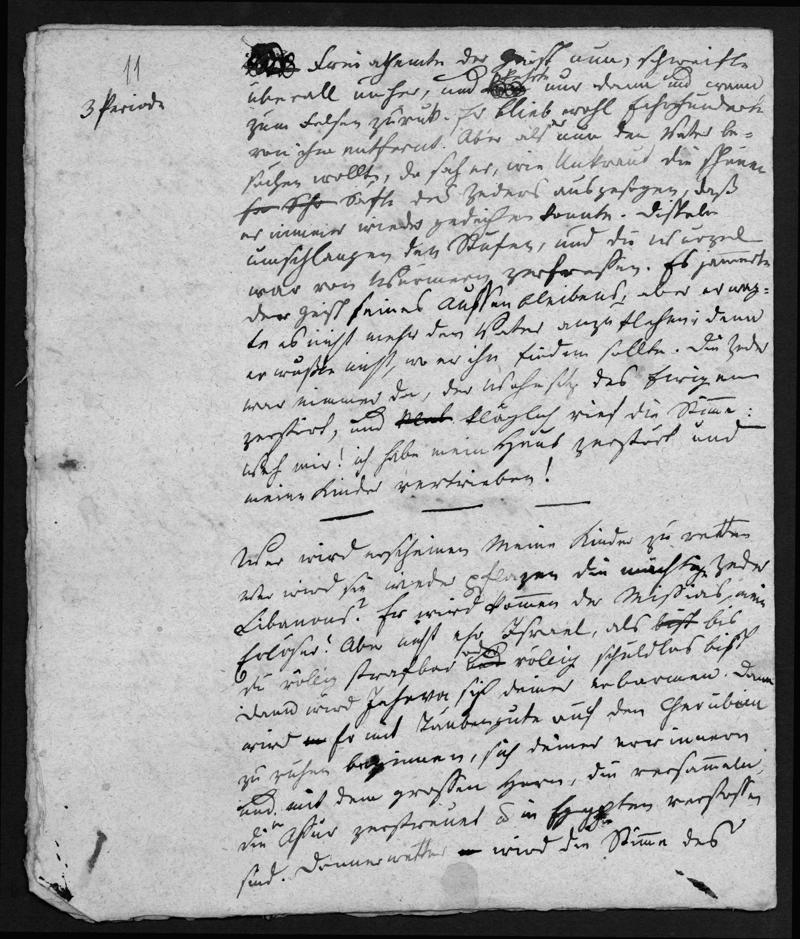 11
3 Periode
Frei athmete der Geist nun, schweifte
überall umher, und kehrte nur dann und wann
zum Felsen zurük. Er blieb wohl Jahrhunderte
von ihm entfernt. Aber als er nun den Vater be-
suchen wollte, da sah er, wie Unkraut die schönen
Säfte des Zeders ausgesogen, daß
er nimmer wieder gedeihen konnte. Disteln
umschlangen den Stufen, und die Wurzel
war von Würmern zerfressen. Es jammerte
der Geist seines Aussenbleibens, aber er wag-
te es nicht mehr den Vater anzuflehen; denn
er wußte nicht, wo er ihn finden sollte. Die Zeder
war nimmer da, der Wohnsitz des Ewigen
zerstört, und kläglich rief die Stimme:
Weh mir! ich habe mein Haus zerstört und
meine Kinder vertrieben!
Wer wird erscheinen Meine Kinder zu retten
wer wird sie wieder pflegen die mächtige Zeder
Libanons? Er wird kommen der Messias, mein
Erlöser! Aber nicht ehr Israel, als bis
du völlig strafbar oder völlig schuldlos bist
dann wird Jehova sich deiner erbarmen. Dann
wird Er mit Taubengüte auf den Cherubim
zu ruhen beginnen, sich deiner erinnern
und mit dem grossen Horn, die versammeln,
die in Assur zerstreuet u in Egypten verstossen
sind. Donnerwetter wird die Stimme des